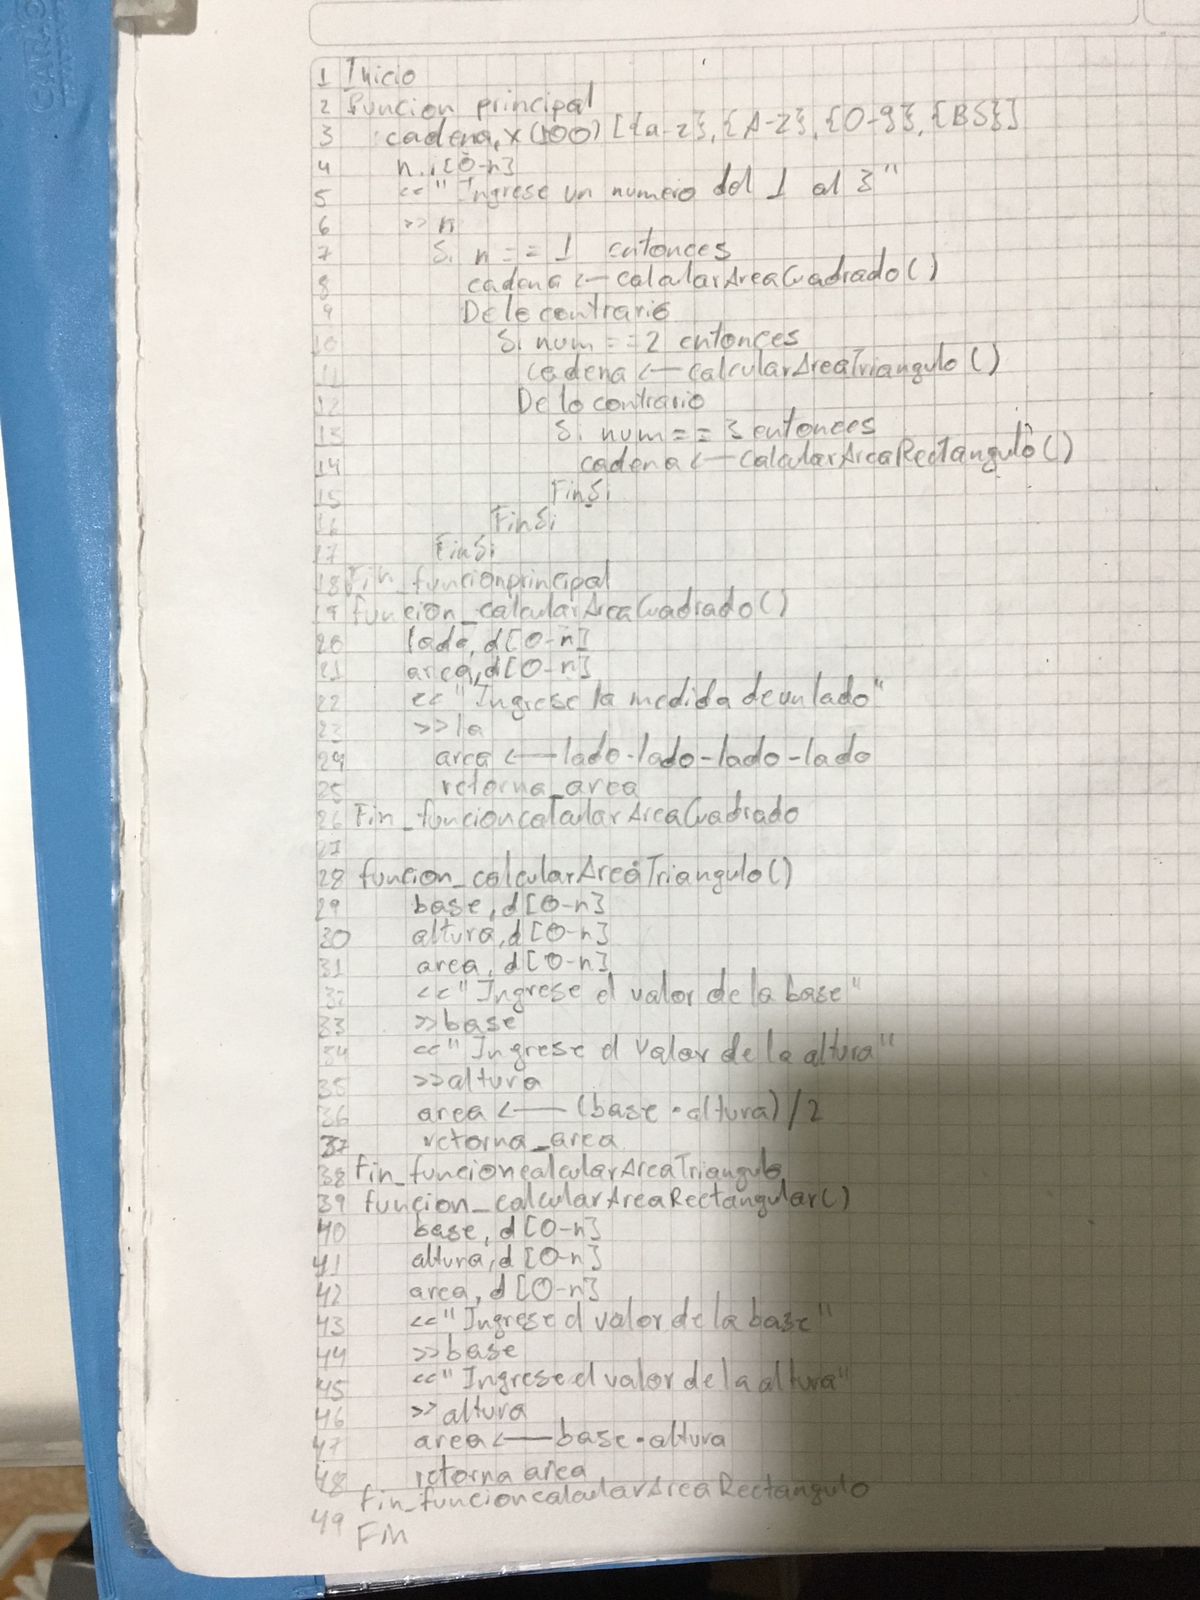 CARA
1 Inicio
2 funcion principal
3 cadena,x(100)[{a-z},{A-Z},{0-9},{BS}]
4 n,i[0-n]
5 <<"Ingrese un numero del 1 al 3"
6 >>n
7 Si n==1 entonces
8 cadena<—calcularAreaCuadrado()
9 De lo contrario
10 Si num==2 entonces
11 cadena<—calcularAreaTriangulo()
12 De lo contrario
13 Si num==3 entonces
14 cadena<—CalcularAreaRectangulo()
15 FinSi
16 FinSi
17 FinSi
18 Fin_funcionprincipal
19 funcion_calcularAreaCuadrado()
20 lado,d[0-n]
21 area,d[0-n]
22 <<"Ingrese la medida de un lado"
23 >>la
24 area<—lado-lado-lado-lado
25 retorna_area
26 Fin_funcioncalcularAreaCuadrado
27
28 funcion_calcularAreaTriangulo()
29 base,d[0-n]
30 altura,d[0-n]
31 area,d[0-n]
32 <<"Ingrese el valor de la base"
33 >>base
34 <<"Ingrese el valor de la altura"
35 >>altura
36 area<—(base·altura)/2
37 retorna_area
38 Fin_funcioncalcularAreaTriangulo
39 funcion_calcularAreaRectangular()
40 base,d[0-n]
41 altura,d[0-n]
42 area,d[0-n]
43 <<"Ingrese el valor de la base"
44 >>base
45 <<"Ingrese el valor de la altura"
46 >>altura
47 area<—base·altura
48 retorna area
fin_funcioncalcularAreaRectangulo
49 Fin